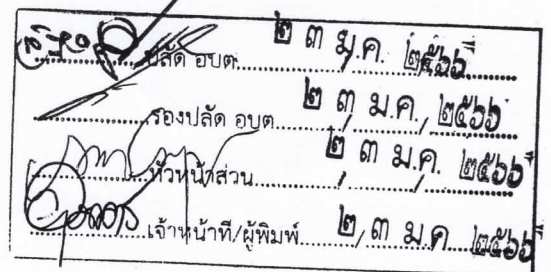 ปลัด อบต. ๒ ๓ ม.ค. ๒๕๖๖
รองปลัด อบต. ๒ ๓ ม.ค. ๒๕๖๖
หัวหน้าส่วน ๒ ๓ ม.ค. ๒๕๖๖
เจ้าหน้าที่/ผู้พิมพ์ ๒ ๓ ม.ค. ๒๕๖๖